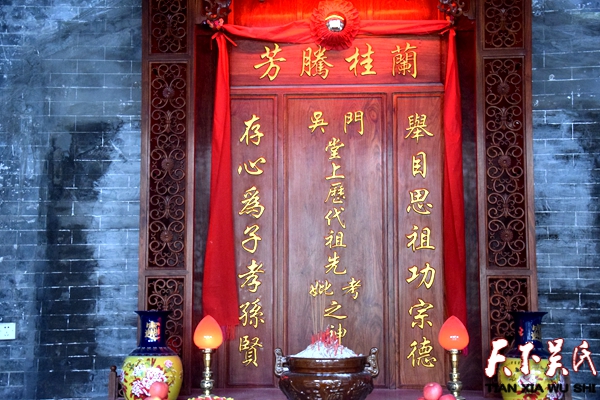 蘭桂騰芳
舉目思祖功宗德
吳門堂上歷代祖先考妣之神
存心爲子孝孫賢
天下吴氏
TIAN XIA WU SHI